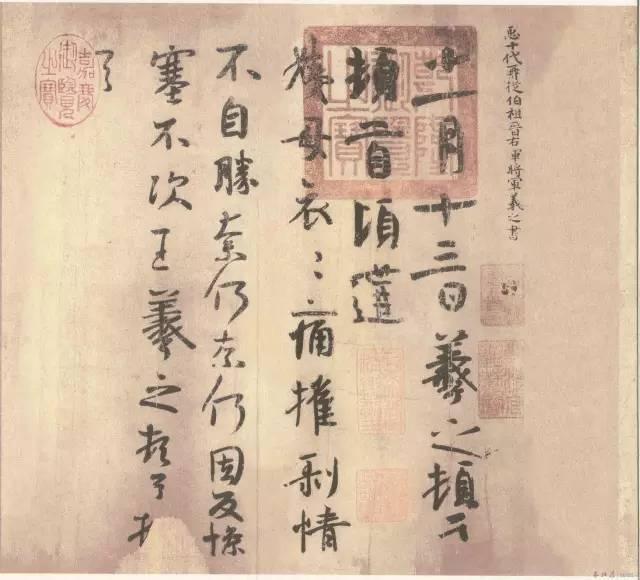 臣十代再從伯祖晉右軍將軍羲之書
十一月十三日羲之頓首
頓首頃遘
姨母哀〻痛摧剝情
不自勝奈何奈何因反慘
塞不次王羲之頓首頓
首
乾隆
御覽
之寶
嘉慶
御覽
之寶